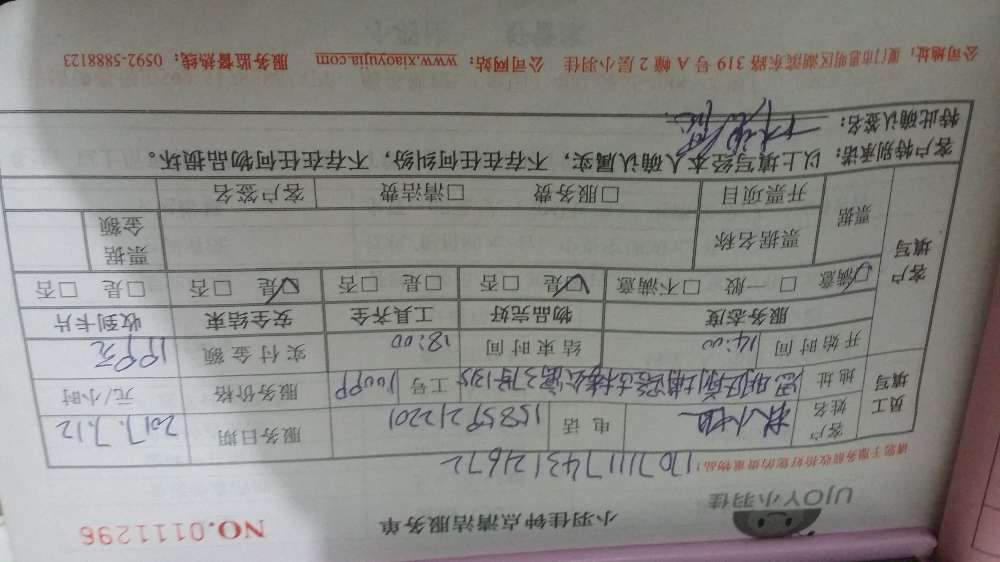 UJOY小羽佳
小羽佳钟点清洁服务单
NO.0111296
请您于服务前收拾好您的贵重物品:
17071117431216 72
员工填写
客户姓名 小姐 电话 15859212201 服务日期 2017.7.12
地址 思明区 工号 服务价格 元/小时
开始时间 14:00 结束时间 18:00 实付金额 199元
客户填写
服务态度 物品完好 工具齐全 安全结束 收到卡片
☑满意 □一般 □不满意 ☑是 □否 □是 □否 ☑是 □否 □是 □否
票据 票据名称 票据金额
开票项目 □服务费 □清洁费 客户签名
客户特别承诺: 以上填写经本人确认属实,不存在任何纠纷,不存在任何物品损坏。
特此确认签名:
公司地址:厦门市思明区湖滨东路319号A幢2层小羽佳 公司网站:www.xiaoyujia.com 服务监督热线:0592-5888123